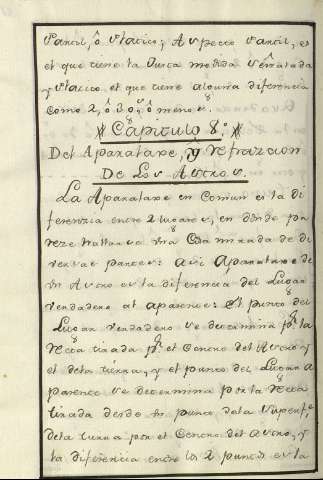 Partil, ô Platico, y Aspecto Partil, es
el que tiene la Justa medida señalada
y Platico el que tiene alguna diferencia
como 2, ô 3 g.s ô menos.
Capitulo 8.º
Del Aparalaxe, y refrazion
De Los Astros.
La Aparalaxe en Comun es la di
ferenzia entre 2 lugares, en donde pa
reze hallarse una Cosa mirada de di
versas partes: asi Aparalaxe de
un Astro es la diferencia del Lugar
verdadero al aparente: El punto del
Lugar verdadero se determina p.r la
recta tirada p.r el Centro del Astro y
el dela tierra, y el punto del Lugar a
parente se determina por la recta
tirada desde un punto dela superfe.
dela tierra por el Centro del Astro, y
la diferencia entre los 2 puntos es la